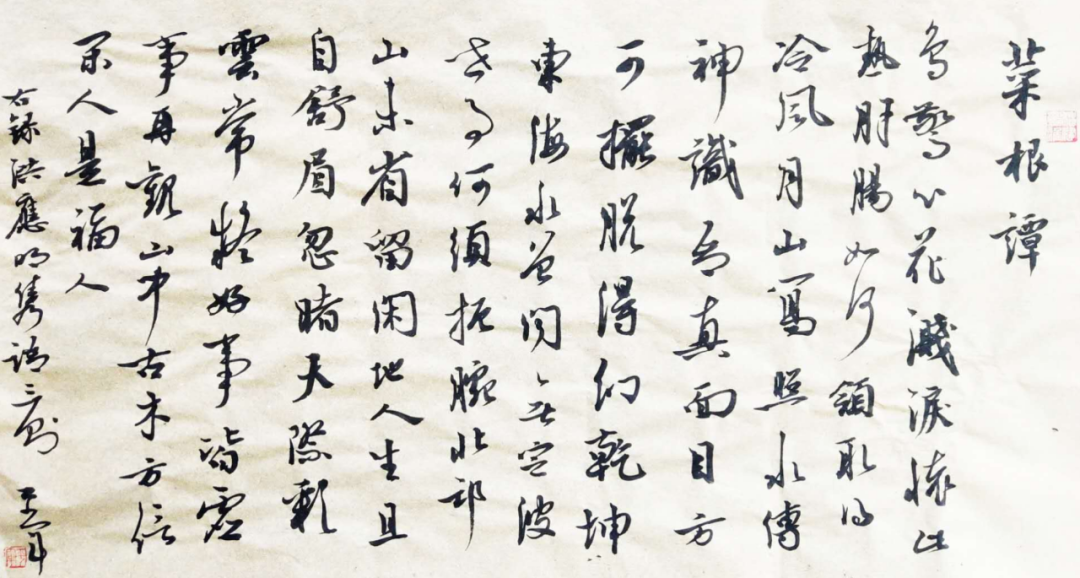 菜根譚
鳥驚心花濺淚懷此
熱肝腸如何領取得
冷風月山寫照水傳
神識吾真面目方
可擺脫得幻乾坤
東海水曾聞無定波
世事何須扼腕北邙
山未省留閑地人生且
自舒眉忽睹天際彩
雲常疑好事皆虛
事再觀山中古木方信
閑人是福人
右錄洪應明雋語三則